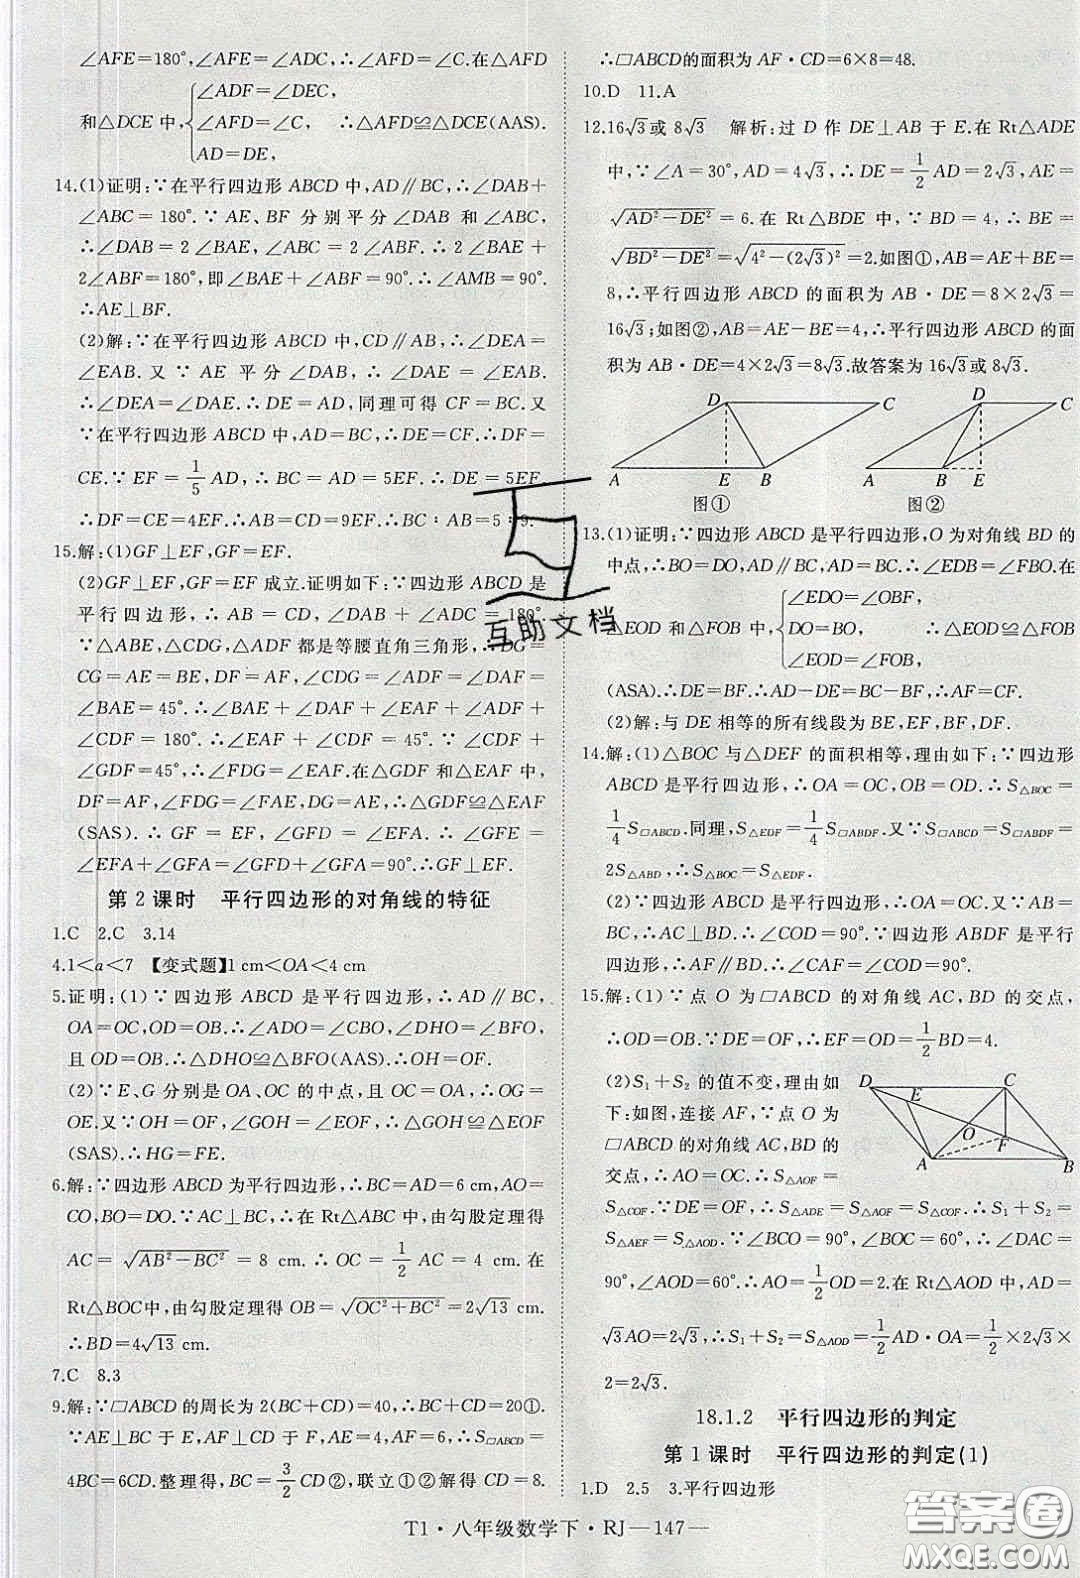 ∠AFE=180°,∠AFE=∠ADC,∴∠AFD=∠C.在△AFD
和△DCE中,{∠ADF=∠DEC,
∠AFD=∠C, ∴△AFD≌△DCE(AAS).
AD=DE,
14.(1)证明:∵在平行四边形ABCD中,AD∥BC,∴∠DAB+
∠ABC=180°.∵AE、BF分别平分∠DAB和∠ABC,
∴∠DAB=2∠BAE,∠ABC=2∠ABF.∴2∠BAE+
2∠ABF=180°,即∠BAE+∠ABF=90°.∴∠AMB=90°.
∴AE⊥BF.
(2)解:∵在平行四边形ABCD中,CD∥AB,∴∠DEA=
∠EAB.又∵AE平分∠DAB,∴∠DAE=∠EAB.
∴∠DEA=∠DAE.∴DE=AD,同理可得CF=BC.又
∵在平行四边形ABCD中,AD=BC,∴DE=CF.∴DF=
CE.∵EF=1/5AD,∴BC=AD=5EF.∴DE=5EF.
∴DF=CE=4EF.∴AB=CD=9EF.∴BC∶AB=5∶9.
15.解:(1)GF⊥EF,GF=EF.
(2)GF⊥EF,GF=EF成立.证明如下:∵四边形ABCD是
平行四边形,∴AB=CD,∠DAB+∠ADC=180°.
∵△ABE,△CDG,△ADF都是等腰直角三角形,∴DG=
CG=AE=BE,DF=AF,∠CDG=∠ADF=∠DAF=
∠BAE=45°.∴∠BAE+∠DAF+∠EAF+∠ADF+
∠CDF=180°.∴∠EAF+∠CDF=45°.∵∠CDF+
∠GDF=45°,∴∠FDG=∠EAF.在△GDF和△EAF中,
DF=AF,∠FDG=∠FAE,DG=AE,∴△GDF≌△EAF
(SAS).∴GF=EF,∠GFD=∠EFA.∴∠GFE=
∠EFA+∠GFA=∠GFD+∠GFA=90°.∴GF⊥EF.
第2课时 平行四边形的对角线的特征
1.C 2.C 3.14
4.1<a<7 【变式题】1 cm<OA<4 cm
5.证明:(1)∵四边形ABCD是平行四边形,∴AD∥BC,
OA=OC,OD=OB.∴∠ADO=∠CBO,∠DHO=∠BFO,
且OD=OB.∴△DHO≌△BFO(AAS).∴OH=OF.
(2)∵E、G分别是OA、OC的中点,且OC=OA,∴OG=
OE.又∵OH=OF,∠GOH=∠EOF,∴△GOH≌△EOF
(SAS).∴HG=FE.
6.解:∵四边形ABCD为平行四边形,∴BC=AD=6 cm,AO=
CO,BO=DO.∵AC⊥BC,∴在Rt△ABC中,由勾股定理得
AC=√(AB²−BC²)=8 cm.∴OC=1/2AC=4 cm.在
Rt△BOC中,由勾股定理得OB=√(OC²+BC²)=2√13 cm.
∴BD=4√13 cm.
7.C 8.3
9.解:∵□ABCD的周长为2(BC+CD)=40,∴BC+CD=20①.
∵AE⊥BC于E,AF⊥CD于F,AE=4,AF=6,∴S□ABCD=
4BC=6CD.整理得,BC=3/2CD②,联立①②解得CD=8.
∴□ABCD的面积为AF·CD=6×8=48.
10.D 11.A
12.16√3或8√3 解析:过D作DE⊥AB于E.在Rt△ADE
中,∵∠A=30°,AD=4√3,∴DE=1/2AD=2√3,AE=
√(AD²−DE²)=6.在Rt△BDE中,∵BD=4,∴BE=
√(BD²−DE²)=√(4²−(2√3)²)=2.如图①,AB=AE+BE=
8,∴平行四边形ABCD的面积为AB·DE=8×2√3=
16√3;如图②,AB=AE−BE=4,∴平行四边形ABCD的面
积为AB·DE=4×2√3=8√3.故答案为16√3或8√3.
D C D C
A E B A B E
图① 图②
13.(1)证明:∵四边形ABCD是平行四边形,O为对角线BD的
中点,∴BO=DO,AD∥BC.∴∠EDB=∠FBO.在
△EOD和△FOB中,{∠EDO=∠OBF,
DO=BO, ∴△EOD≌△FOB
∠EOD=∠FOB,
(ASA).∴DE=BF.∴AD−DE=BC−BF,∴AF=CF.
(2)解:与DE相等的所有线段为BE,EF,BF,DF.
14.解:(1)△BOC与△DEF的面积相等,理由如下:∵四边形
ABCD是平行四边形,∴OA=OC,OB=OD.∴S△BOC=
1/4S□ABCD.同理,S△EDF=1/4S□ABDF.又∵S□ABCD=S□ABDF=
2S△ABD,∴S△BOC=S△EDF.
(2)∵四边形ABCD是平行四边形,∴OA=OC.又∵AB=
BC,∴BO⊥AC,∴∠COD=90°.∵四边形ABDF是平行四
边形,∴AF∥BD.∴∠CAF=∠COD=90°.
15.解:(1)∵点O为□ABCD的对角线AC,BD的交点,
∴OD=OB.∵DE=OF,∴EF=OD=1/2BD=4.
(2)S₁+S₂的值不变,理由如
下:如图,连接AF,∵点O为
□ABCD的对角线AC,BD的
交点,∴AO=OC.∴S△AOF=
D C
E
O
F
A B
S△COF.∵DE=OF,∴S△ADE=S△AOF=S△COF.∴S₁+S₂=
S△AEF=S△AOD.∵∠BCO=90°,∠BOC=60°,∴∠DAC=
90°,∠AOD=60°.∴AO=1/2OD=2.在Rt△AOD中,AD=
√3AO=2√3,∴S₁+S₂=S△AOD=1/2AD·OA=1/2×2√3×
2=2√3.
18.1.2 平行四边形的判定
第1课时 平行四边形的判定(1)
1.D 2.5 3.平行四边形
T1·八年级数学下·RJ—147—
互助文档
答案圈
MXQE.COM